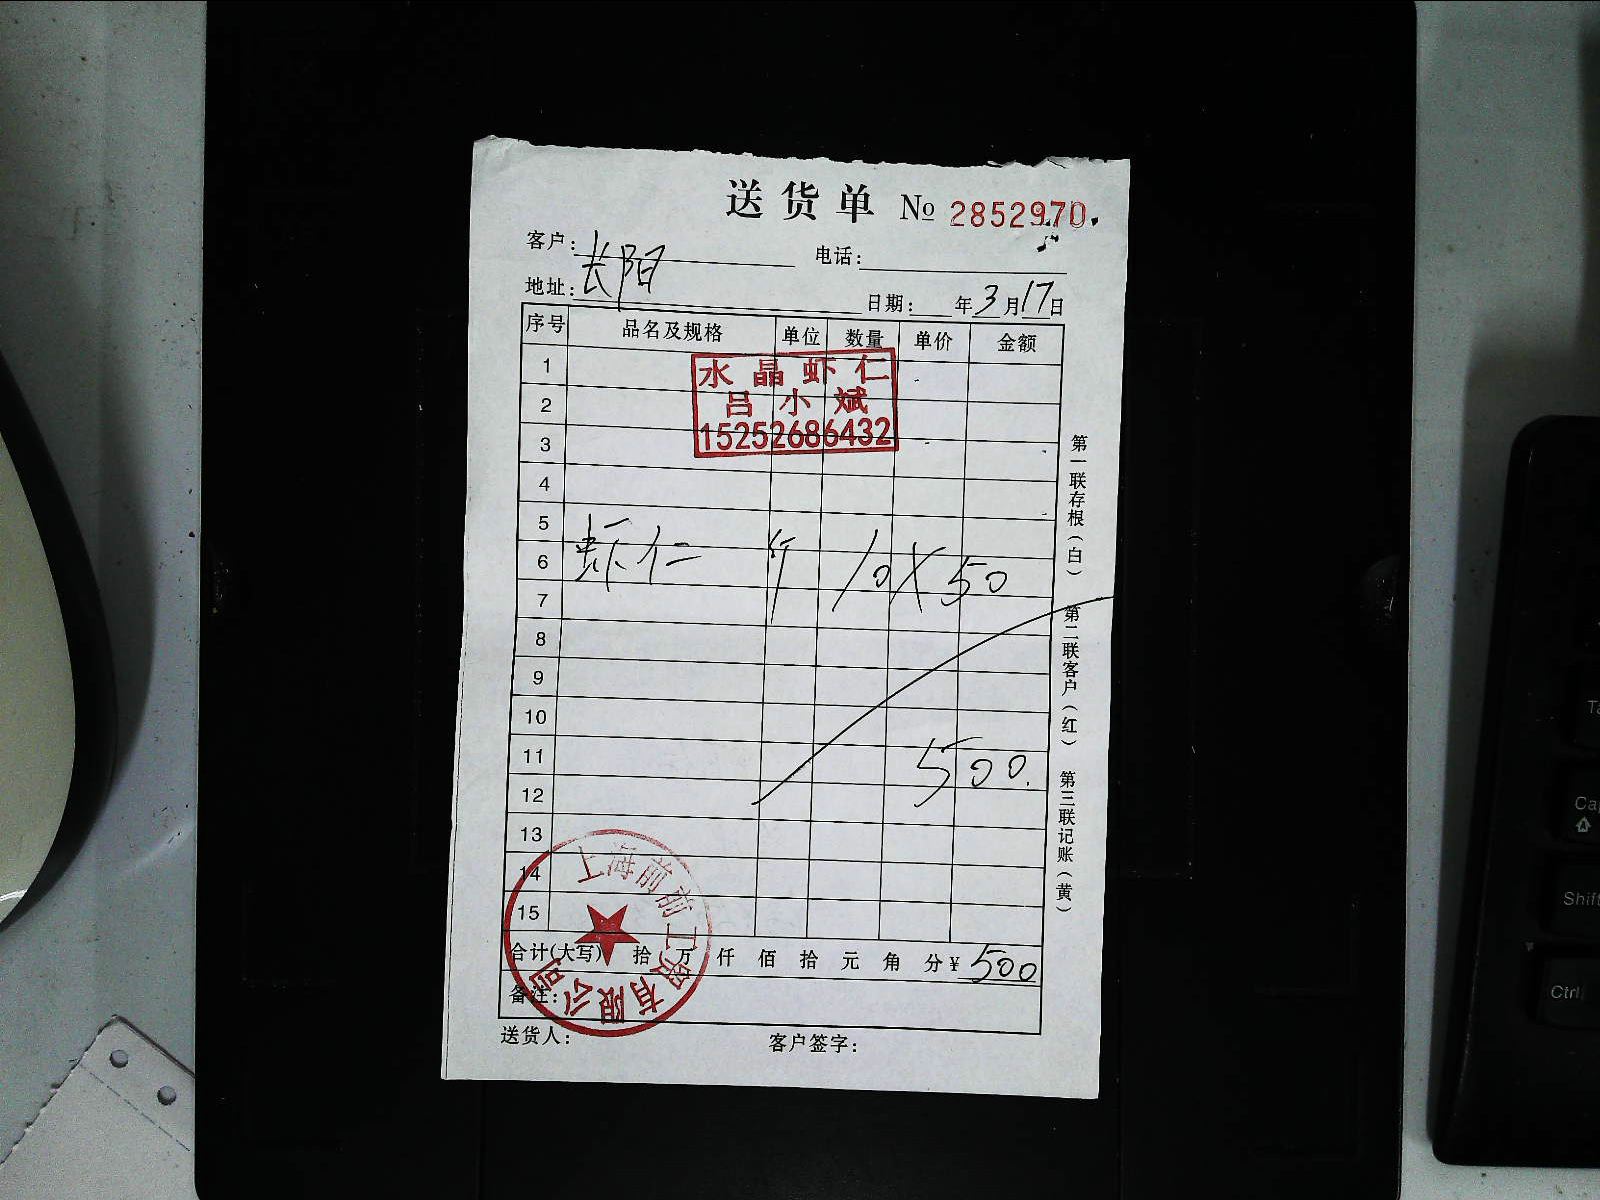 送货单 № 2852970
客户: 长阳 电话:
地址: 日期: 年3月17日
序号 品名及规格 单位 数量 单价 金额
水晶虾仁
吕小斌
15252686432
1
2
3
4
5
6 虾仁 斤 10×50
7
8
9
10
11 500.
12
13
14
15
合计(大写) 拾 万 仟 佰 拾 元 角 分 ¥ 500
备注:
送货人: 客户签字:
上海前前工贸有限公司
第一联存根(白) 第二联客户(红) 第三联记账(黄)
Cap
Shift
Ctrl